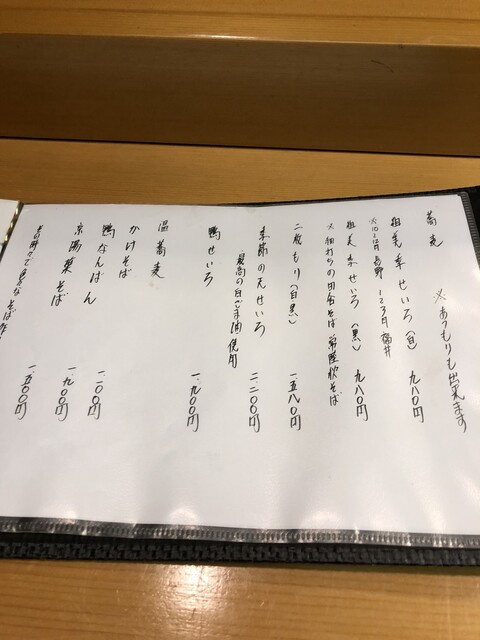 蕎麦
※あつもりも出来ます
粗美幸せいろ(白) 九八〇円
※10.12月長野 1.2.3月福井
粗美幸せいろ(黒) 九八〇円
※粗打ちの田舎そば 常陸秋そば
二色もり(白黒) 一.五八〇円
季節の天せいろ 二.二〇〇円
最高の白ごま油使用
鴨せいろ 一.九〇〇円
温蕎麦
かけそば
鴨なんばん 一.一〇〇円
京湯葉そば 一.九〇〇円
その時々で色々なそば
一.五〇〇円